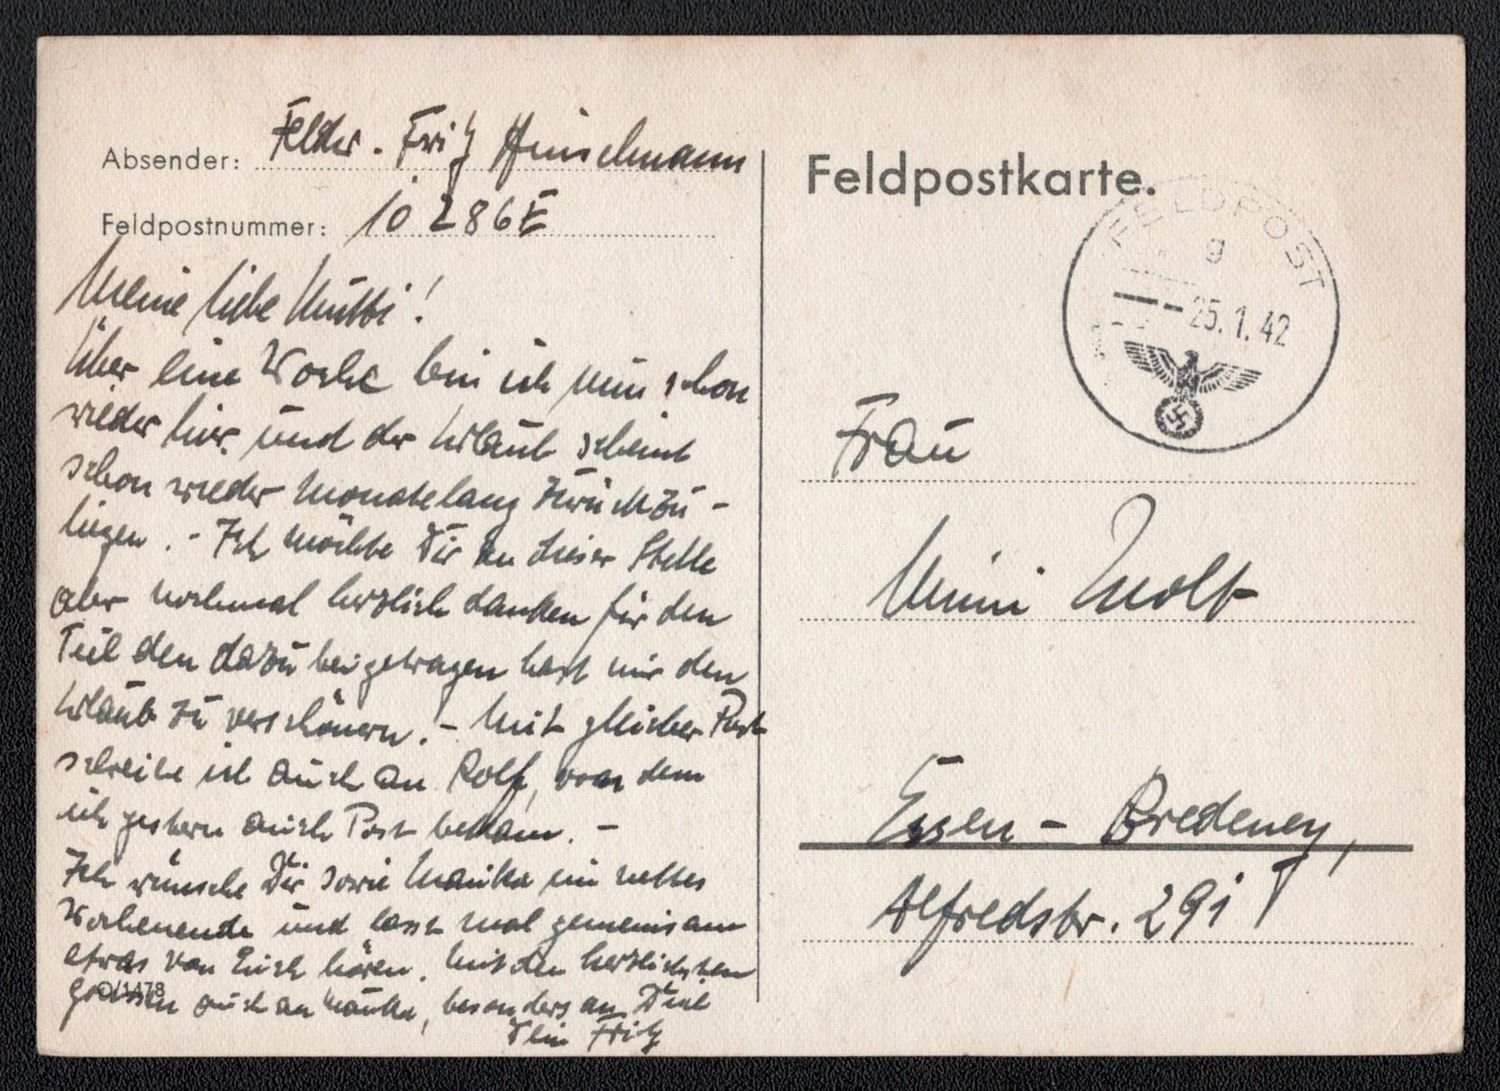 Absender: Feldw. Fritz Hünschmann
Feldpostnummer: 10286E
Meine liebe Mutti!
Über eine Woche bin ich nun schon
wieder hier und der Urlaub scheint
schon wieder monatelang zurückzu-
liegen. - Ich möchte Dir an dieser Stelle
aber nochmal herzlich danken für den
Teil den dazu beigetragen hast mir den
Urlaub zu verschönern. - Mit gleicher Post
schreibe ich auch an Rolf, von dem
ich gestern auch Post bekam. -
Ich wünsche Dir sowie Marika ein nettes
Wochenende und lasst mal gemeinsam
etwas von Euch hören. Mit den herzlichsten
Grüssen auch an Marika, besonders an Dich
Dein Fritz
Feldpostkarte.
FELDPOST
g
25.1.42
Frau
Mimi Wolf
Essen - Bredeney,
Alfredstr. 291